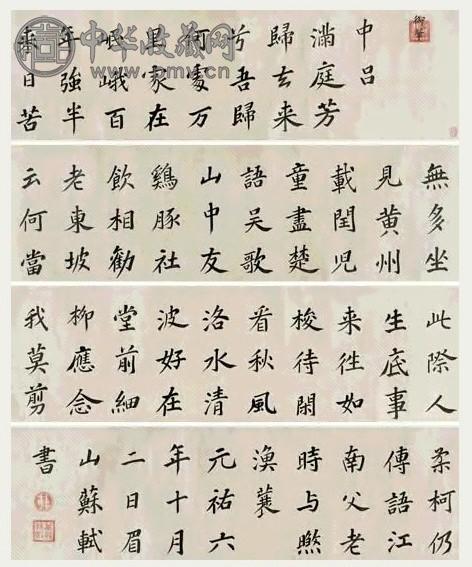 中华收藏网
中呂
滿庭芳
歸去来
兮吾歸
何處万
里家在
岷峨百
年強半
来日苦
無多坐
見黄州
載閏児
童盡楚
語吴歌
山中友
鷄豚社
飲相勸
老東坡
云何當
此際人
生底事
来徃如
梭待閑
看秋風
洛水清
波好在
堂前細
柳應念
我莫剪
柔柯仍
傳語江
南父老
時与
漁蓑
元祐六
年十月
二日眉
山蘇軾
書